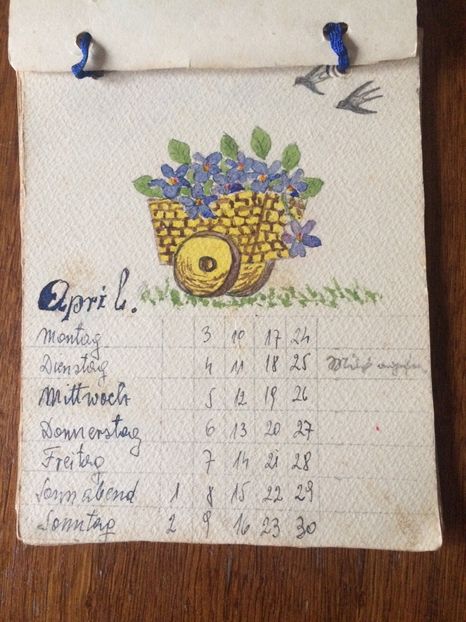 April.
Montag 3 10 17 24
Dienstag 4 11 18 25
Mittwoch 5 12 19 26
Donnerstag 6 13 20 27
Freitag 7 14 21 28
Sonnabend 1 8 15 22 29
Sonntag 2 9 16 23 30